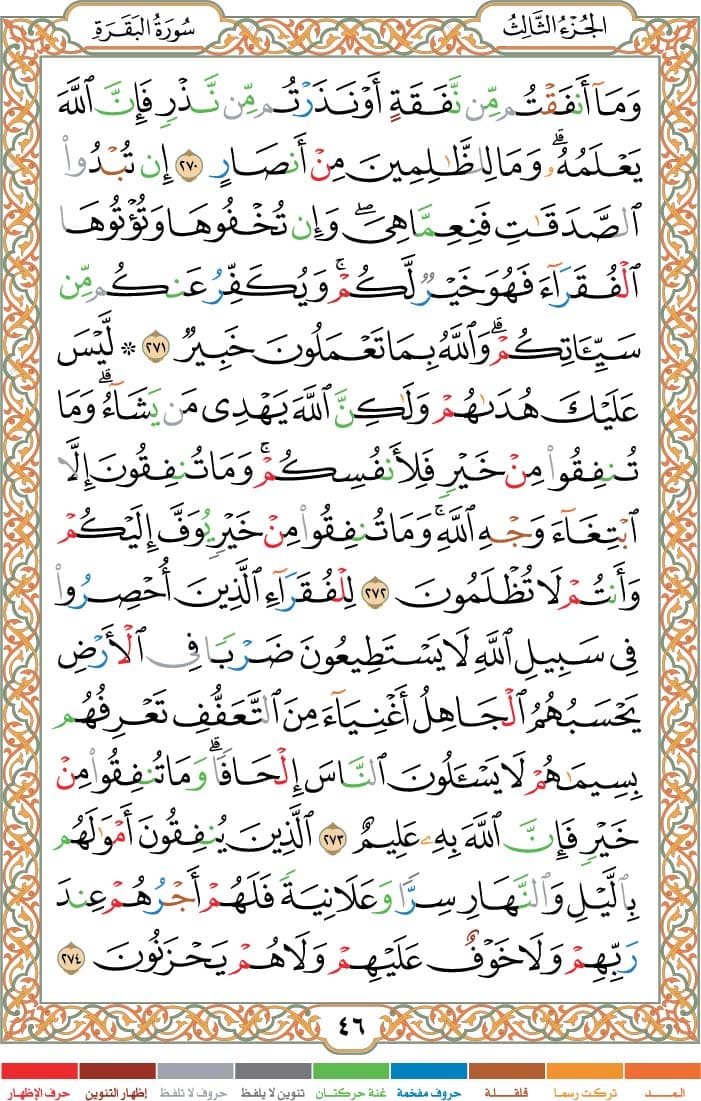 الجُزْءُ الثَّالِثُ
سُورَةُ البَقَرَةِ
وَمَآ أَنفَقْتُم مِّن نَّفَقَةٍ أَوْ نَذَرْتُم مِّن نَّذْرٍ فَإِنَّ ٱللَّهَ
يَعْلَمُهُۥۗ وَمَا لِلظَّٰلِمِينَ مِنْ أَنصَارٍ ٢٧٠ إِن تُبْدُوا۟
ٱلصَّدَقَٰتِ فَنِعِمَّا هِىَۖ وَإِن تُخْفُوهَا وَتُؤْتُوهَا
ٱلْفُقَرَآءَ فَهُوَ خَيْرٌ لَّكُمْۚ وَيُكَفِّرُ عَنكُم مِّن
سَيِّـَٔاتِكُمْۗ وَٱللَّهُ بِمَا تَعْمَلُونَ خَبِيرٌ ٢٧١ * لَّيْسَ
عَلَيْكَ هُدَىٰهُمْ وَلَٰكِنَّ ٱللَّهَ يَهْدِى مَن يَشَآءُۗ وَمَا
تُنفِقُوا۟ مِنْ خَيْرٍ فَلِأَنفُسِكُمْۚ وَمَا تُنفِقُونَ إِلَّا
ٱبْتِغَآءَ وَجْهِ ٱللَّهِۚ وَمَا تُنفِقُوا۟ مِنْ خَيْرٍ يُوَفَّ إِلَيْكُمْ
وَأَنتُمْ لَا تُظْلَمُونَ ٢٧٢ لِلْفُقَرَآءِ ٱلَّذِينَ أُحْصِرُوا۟
فِى سَبِيلِ ٱللَّهِ لَا يَسْتَطِيعُونَ ضَرْبًا فِى ٱلْأَرْضِ
يَحْسَبُهُمُ ٱلْجَاهِلُ أَغْنِيَآءَ مِنَ ٱلتَّعَفُّفِ تَعْرِفُهُم
بِسِيمَٰهُمْ لَا يَسْـَٔلُونَ ٱلنَّاسَ إِلْحَافًاۗ وَمَا تُنفِقُوا۟ مِنْ
خَيْرٍ فَإِنَّ ٱللَّهَ بِهِۦ عَلِيمٌ ٢٧٣ ٱلَّذِينَ يُنفِقُونَ أَمْوَٰلَهُم
بِٱلَّيْلِ وَٱلنَّهَارِ سِرًّا وَعَلَانِيَةً فَلَهُمْ أَجْرُهُمْ عِندَ
رَبِّهِمْ وَلَا خَوْفٌ عَلَيْهِمْ وَلَا هُمْ يَحْزَنُونَ ٢٧٤
٤٦
المد
تركت رسما
قلقلة
حروف مفخمة
غنة حركتان
تنوين لا يلفظ
حروف لا تلفظ
إظهار التنوين
حرف الإظهار